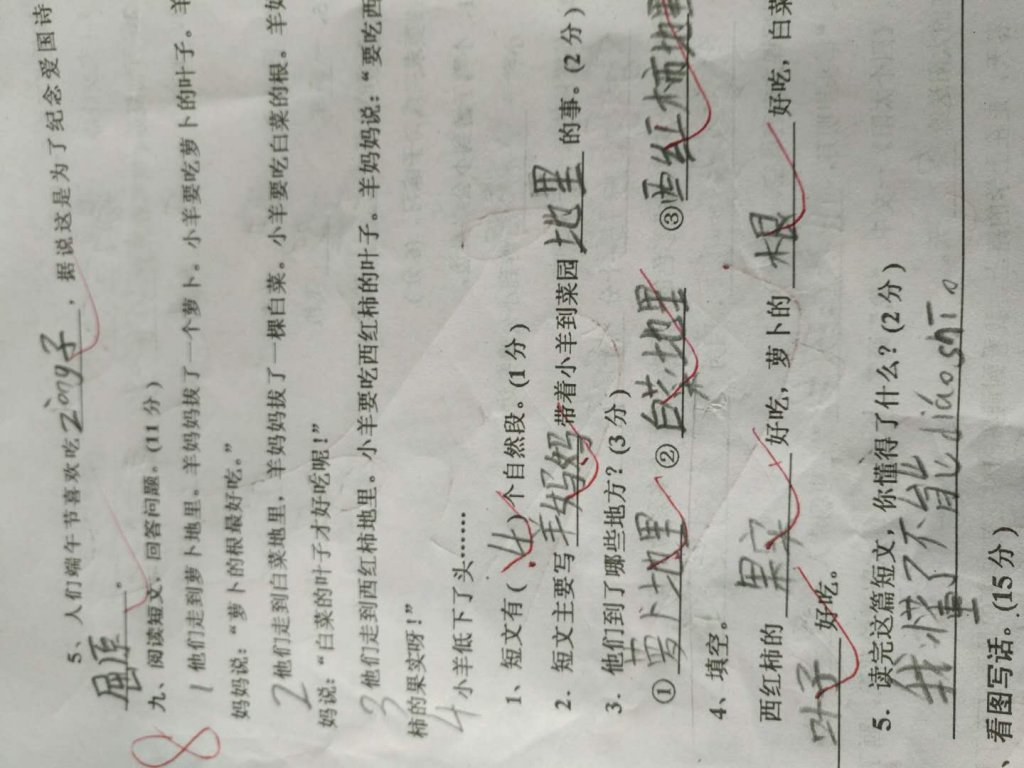 5、人们端午节喜欢吃zòng子，据说这是为了纪念爱国诗
屈原。
九、阅读短文，回答问题。(11 分)
8
1 他们走到萝卜地里。羊妈妈拔了一个萝卜。小羊要吃萝卜的叶子。羊
妈妈说：“萝卜的根最好吃。”
2 他们走到白菜地里，羊妈妈拔了一棵白菜。小羊要吃白菜的根。羊妈
妈说：“白菜的叶子才好吃呢！”
3 他们走到西红柿地里。小羊要吃西红柿的叶子。羊妈妈说：“要吃西
柿的果实呀！”
4 小羊低下了头……
1、短文有( 4 )个自然段。(1 分)
2．短文主要写羊妈妈带着小羊到菜园地里的事。(2 分)
3．他们到了哪些地方？(3 分)
①萝卜地里 ②白菜地里 ③西红柿地里
4、填空。
西红柿的果实好吃，萝卜的根好吃，白菜
叶子好吃。
5．读完这篇短文，你懂得了什么？(2 分)
我懂了不能
、看图写话。(15 分)